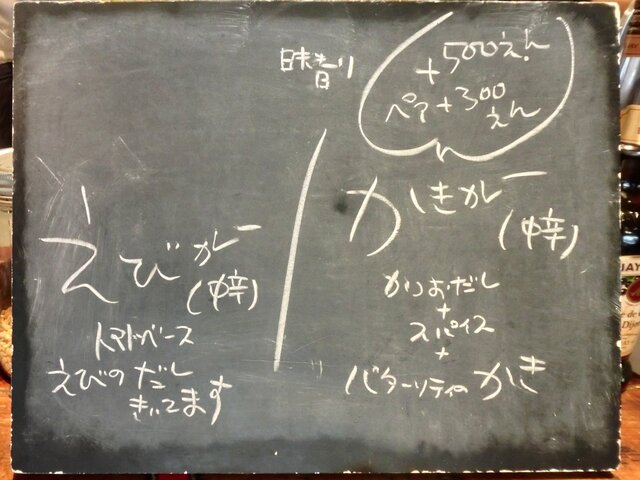 +500えん
ペア+300
えん
えびカレー
(中辛)
トマトベース
えびのだし
きいてます
かきカレー
(中辛)
かつおだし
+
スパイス
+
バターソティのかき